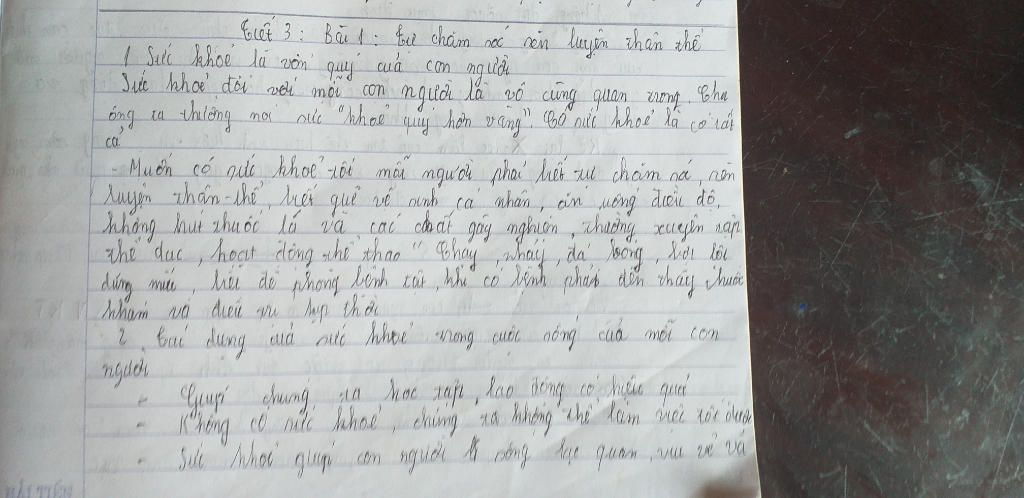 Tiết 3: Bài 1: Tự chăm sóc rèn luyện thân thể
1 Sức khoẻ là vốn quý của con người
Sức khoẻ đối với mỗi con người là vô cùng quan trong. Cha
ông ta thường nói sức "khoẻ quý hơn vàng". Có sức khoẻ là có tất
cả
- Muốn có sức khoẻ tốt mỗi người phải biết tự chăm só, rèn
luyện thân thể, biết giữ vệ sinh cá nhân, ăn uống điều độ,
không hút thuốc lá và các chất gây nghiện, thường xuyên tập
thể dục, hoạt động thể thao " Chạy, nhảy, đá bóng, bơi lội
đúng mức, biết đề phòng bệnh tật, khi có bệnh phải đến thầy thuốc
khám và điều trị kịp thời
2. Tác dụng của sức khoẻ trong cuộc sống của mỗi con
người
- Giúp chúng ta học tập, lao động có hiệu quả
- Không có sức khoẻ, chúng ta không thể làm việc tốt được
- Sức khoẻ giúp con người sống lạc quan, vui vẻ và